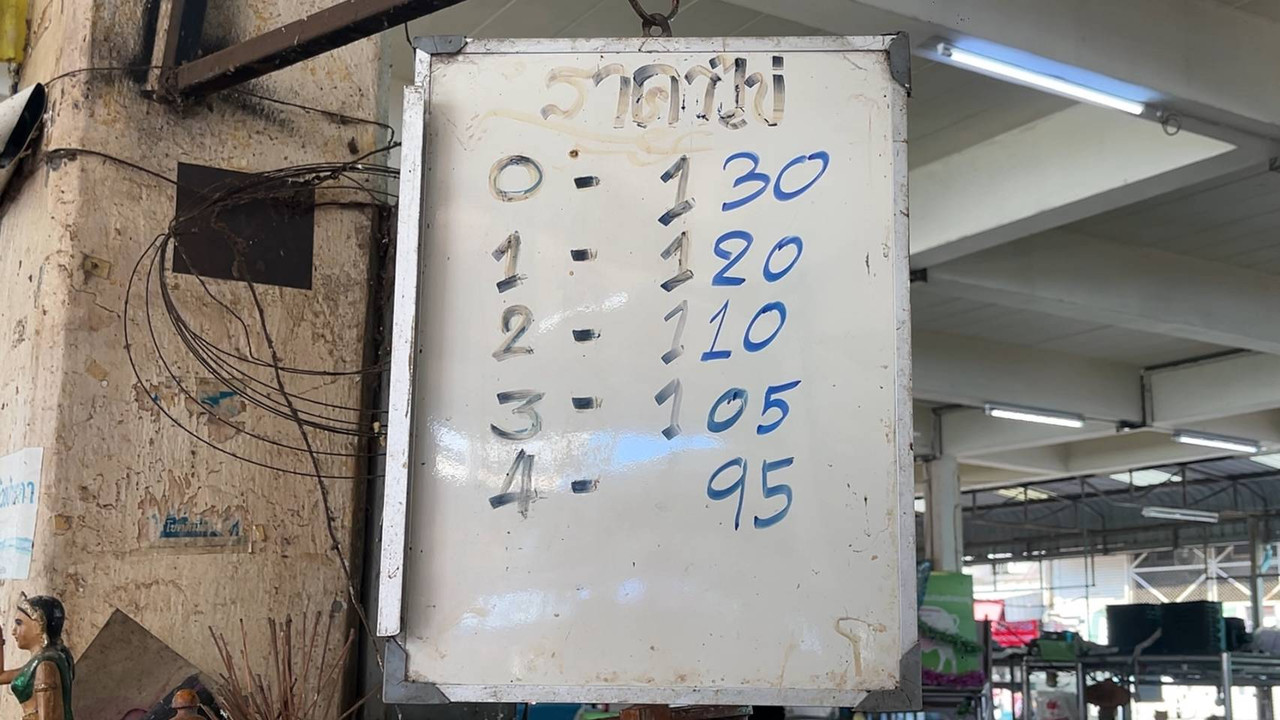 ราคาไข่
0 - 130
1 - 120
2 - 110
3 - 105
4 - 95